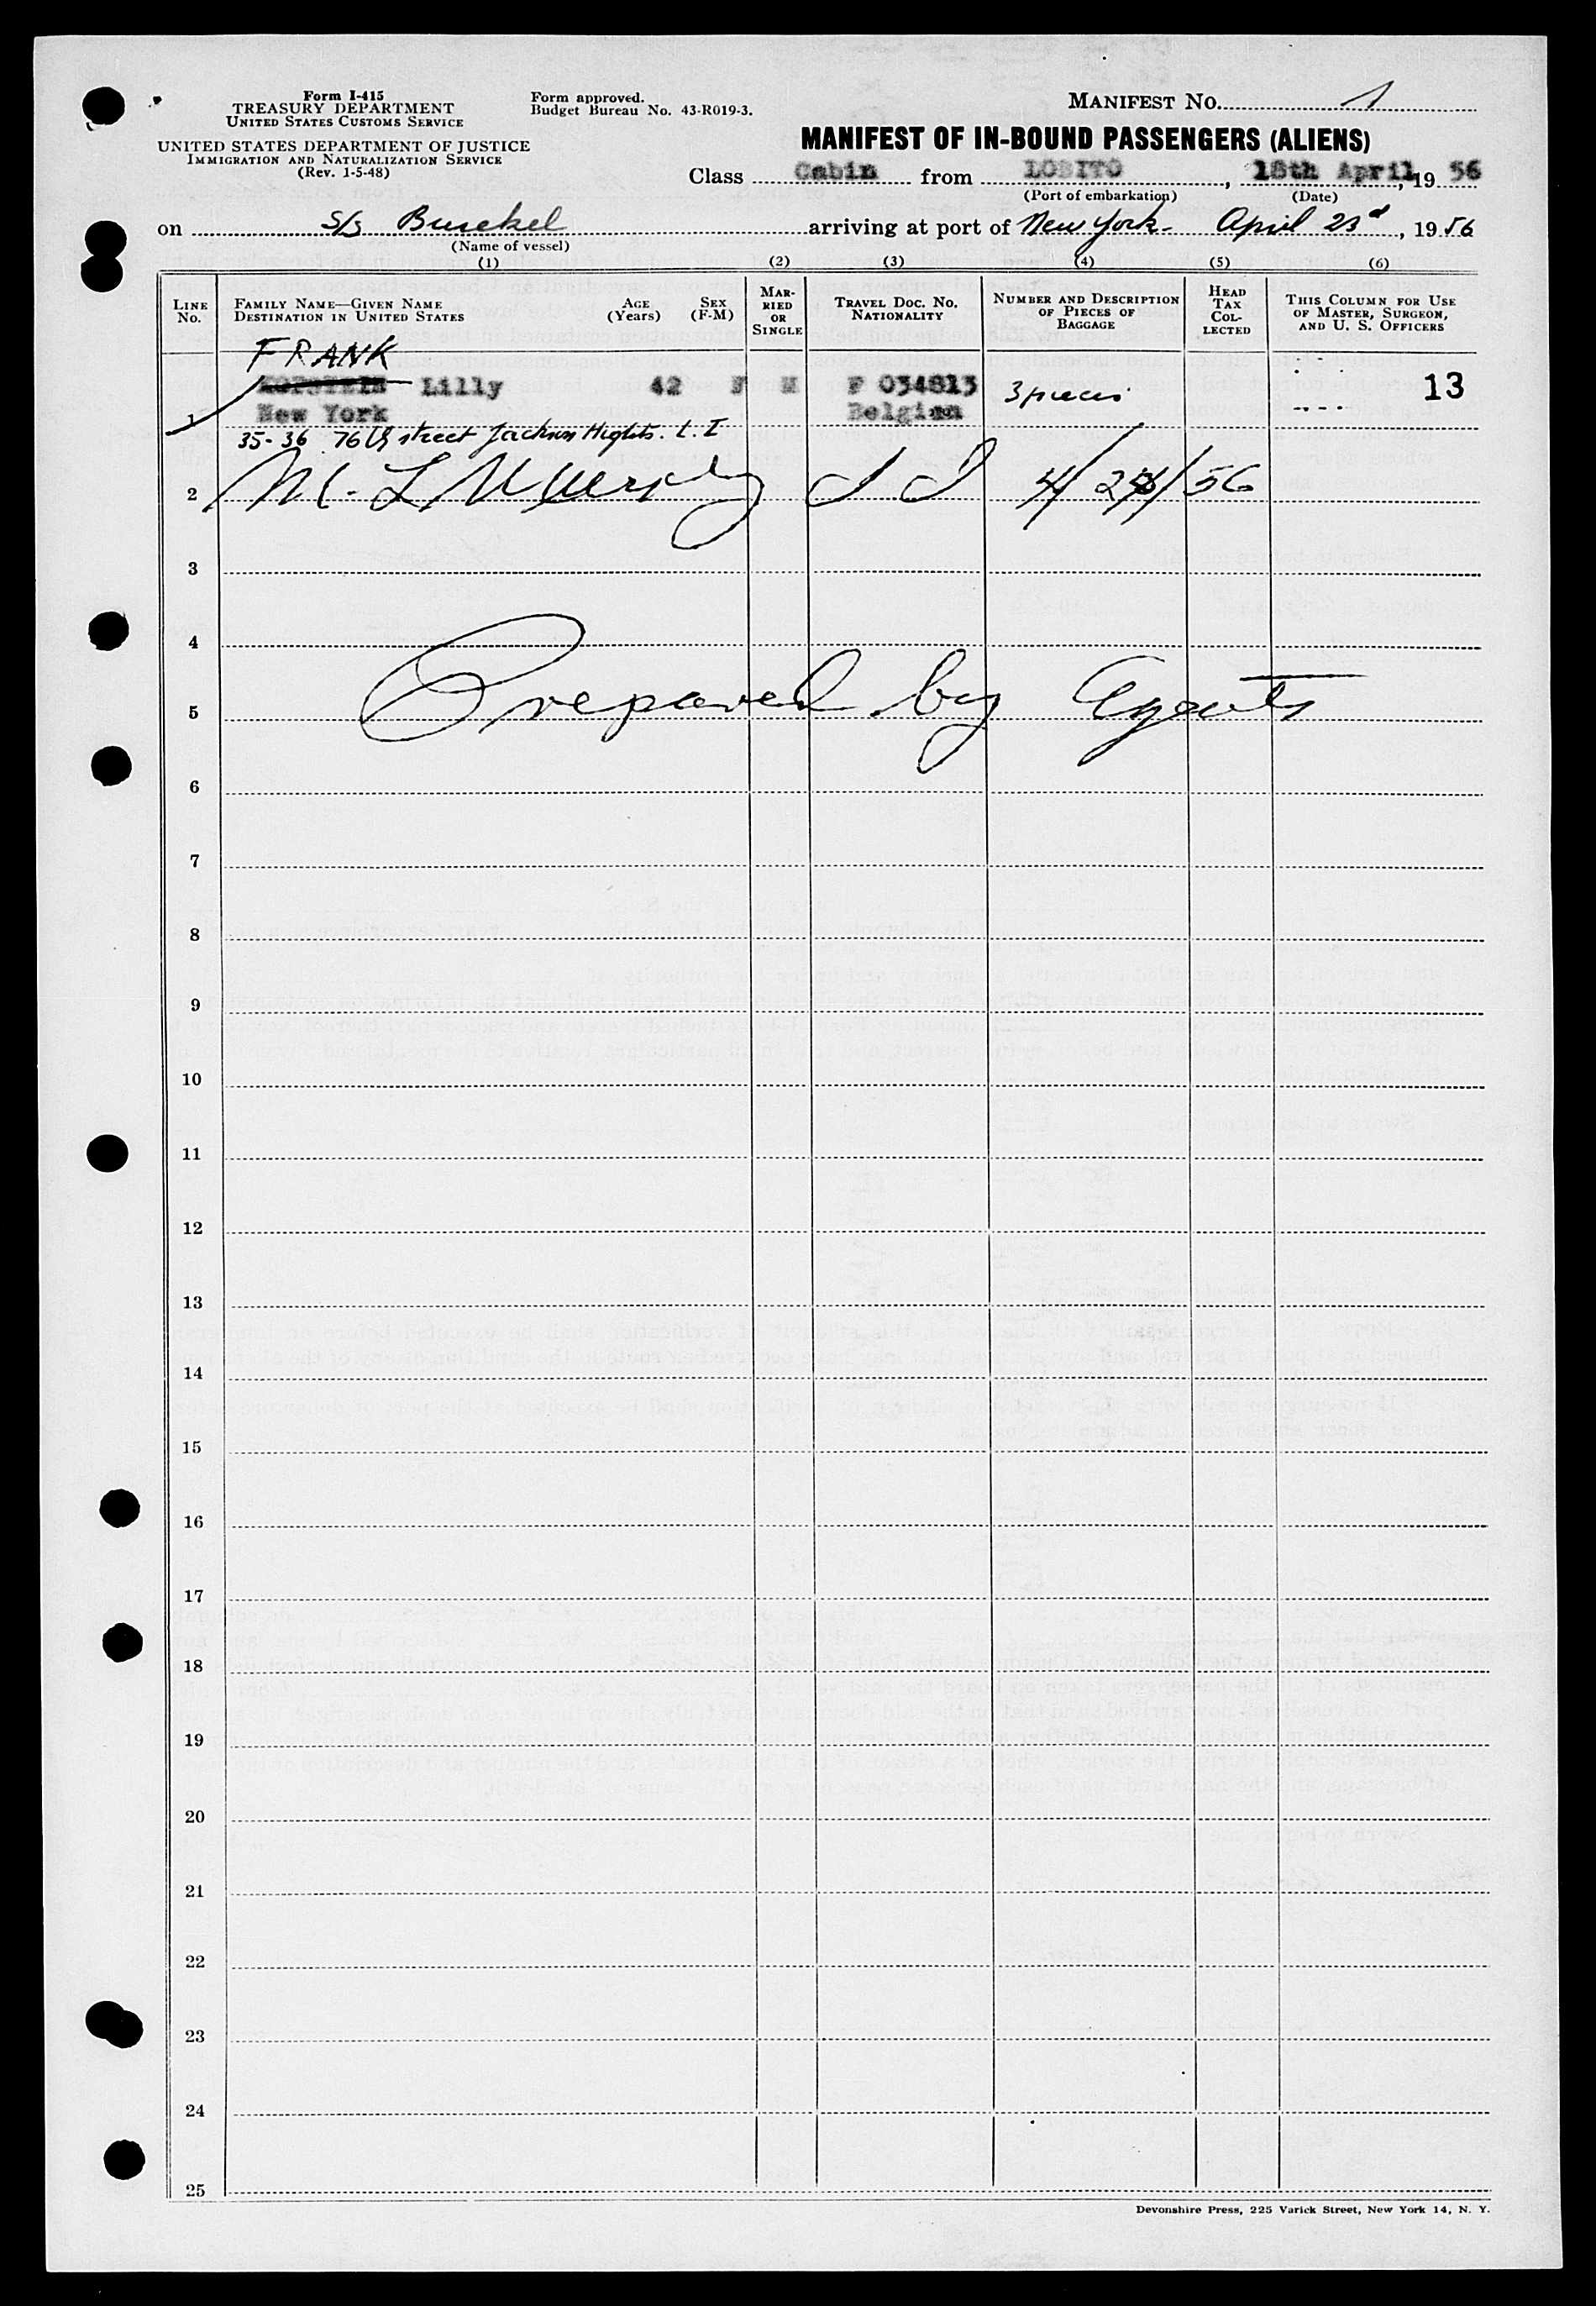 Form I-415
TREASURY DEPARTMENT
UNITED STATES CUSTOMS SERVICE
UNITED STATES DEPARTMENT OF JUSTICE
IMMIGRATION AND NATURALIZATION SERVICE
(Rev. 1-5-48)
Form approved.
Budget Bureau No. 43-R019-3.
MANIFEST NO. 1
MANIFEST OF IN-BOUND PASSENGERS (ALIENS)
Class Cabin from LOBITO, 18th April, 19 56
(Port of embarkation) (Date)
on S/S arriving at port of New York - April 23d, 19 56
(Name of vessel)
(1) (2) (3) (4) (5) (6)
LINE NO.
FAMILY NAME—GIVEN NAME
DESTINATION IN UNITED STATES
AGE (Years)
SEX (F-M)
MARRIED OR SINGLE
TRAVEL DOC. NO. NATIONALITY
NUMBER AND DESCRIPTION OF PIECES OF BAGGAGE
HEAD TAX COLLECTED
THIS COLUMN FOR USE OF MASTER, SURGEON, AND U. S. OFFICERS
FRANK
Lilly 42 F M P 034813 3 pieces 13
1 New York Belgian
35-36 76th street Jackson Hights. L. I
2 4/24/56
3
4
5 Prepared by Agents
6
7
8
9
10
11
12
13
14
15
16
17
18
19
20
21
22
23
24
25
Devonshire Press, 225 Varick Street, New York 14, N. Y.